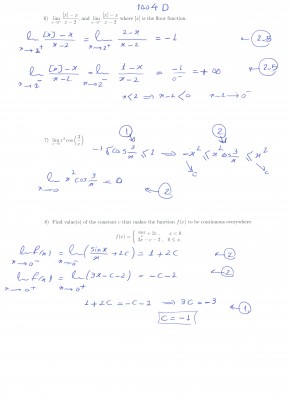 1004 D
6) lim x→2⁺ ([x] − x)/(x − 2), and lim x→2⁻ ([x] − x)/(x − 2) where [x] is the floor function.
lim x→2⁺ ([x] − x)/(x − 2) = lim x→2⁺ (2 − x)/(x − 2) = −1 ← 2.5
lim x→2⁻ ([x] − x)/(x − 2) = lim x→2⁻ (1 − x)/(x − 2) = −1/0⁻ = +∞ ← 2.5
x<2 ⇒ x−2<0 x−2→0⁻
1 2
7) lim x→0 x² cos(3/x) −1 ≤ cos 3/x ≤ 1 ⇒ −x² ≤ x² cos 3/x ≤ x²
0 0
lim x→0 x² cos 3/x = 0 ← 2
8) Find value(s) of the constant c that makes the function f(x) to be continuous everywhere
f(x) = { sin x/x + 2c , x < 0
3x − c − 2 , 0 ≤ x
lim x→0⁻ f(x) = lim x→0⁻ (sin x/x + 2C) = 1 + 2C ← 2
lim x→0⁺ f(x) = lim x→0⁺ (3x − C − 2) = −C − 2 ← 2
1 + 2C = −C − 2 ⇒ 3C = −3 ← 1
C = −1